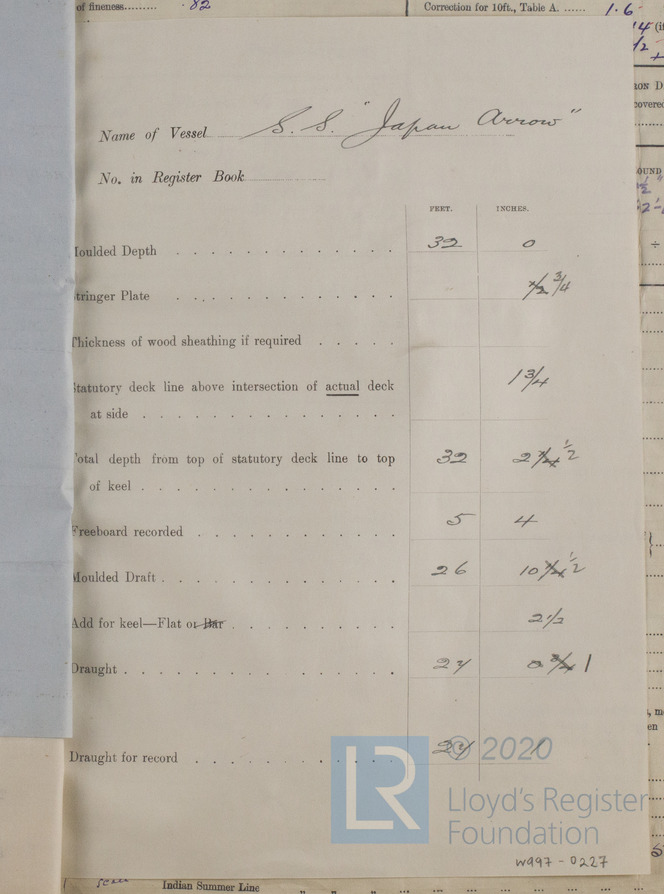 of fineness......... .82 Correction for 10ft., Table A. ...... 1.6
Name of Vessel S.S. "Japan Arrow"
No. in Register Book
FEET. INCHES.
Moulded Depth 32 0
Stringer Plate 1/2 3/4
Thickness of wood sheathing if required
Statutory deck line above intersection of actual deck 1 3/4
at side
Total depth from top of statutory deck line to top 32 2 1/2
of keel
Freeboard recorded 5 4
Moulded Draft 26 10 1/2
Add for keel—Flat or Bar 2 1/2
Draught 27 1
Draught for record 27 1
© 2020
LR Lloyd's Register
Foundation
W997-0227
Indian Summer Line